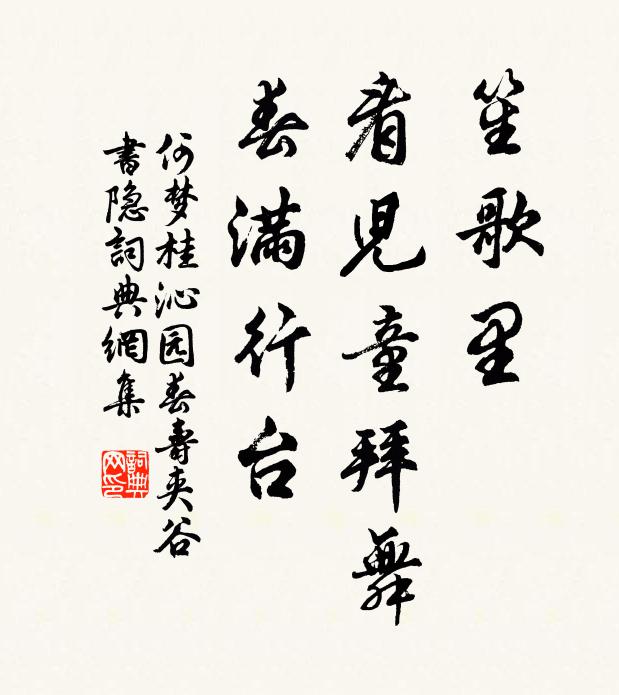 笙歌里
看兒童拜舞
春滿行台
何梦桂沁园春壽夾谷
書隐詞典網集
詞典网印